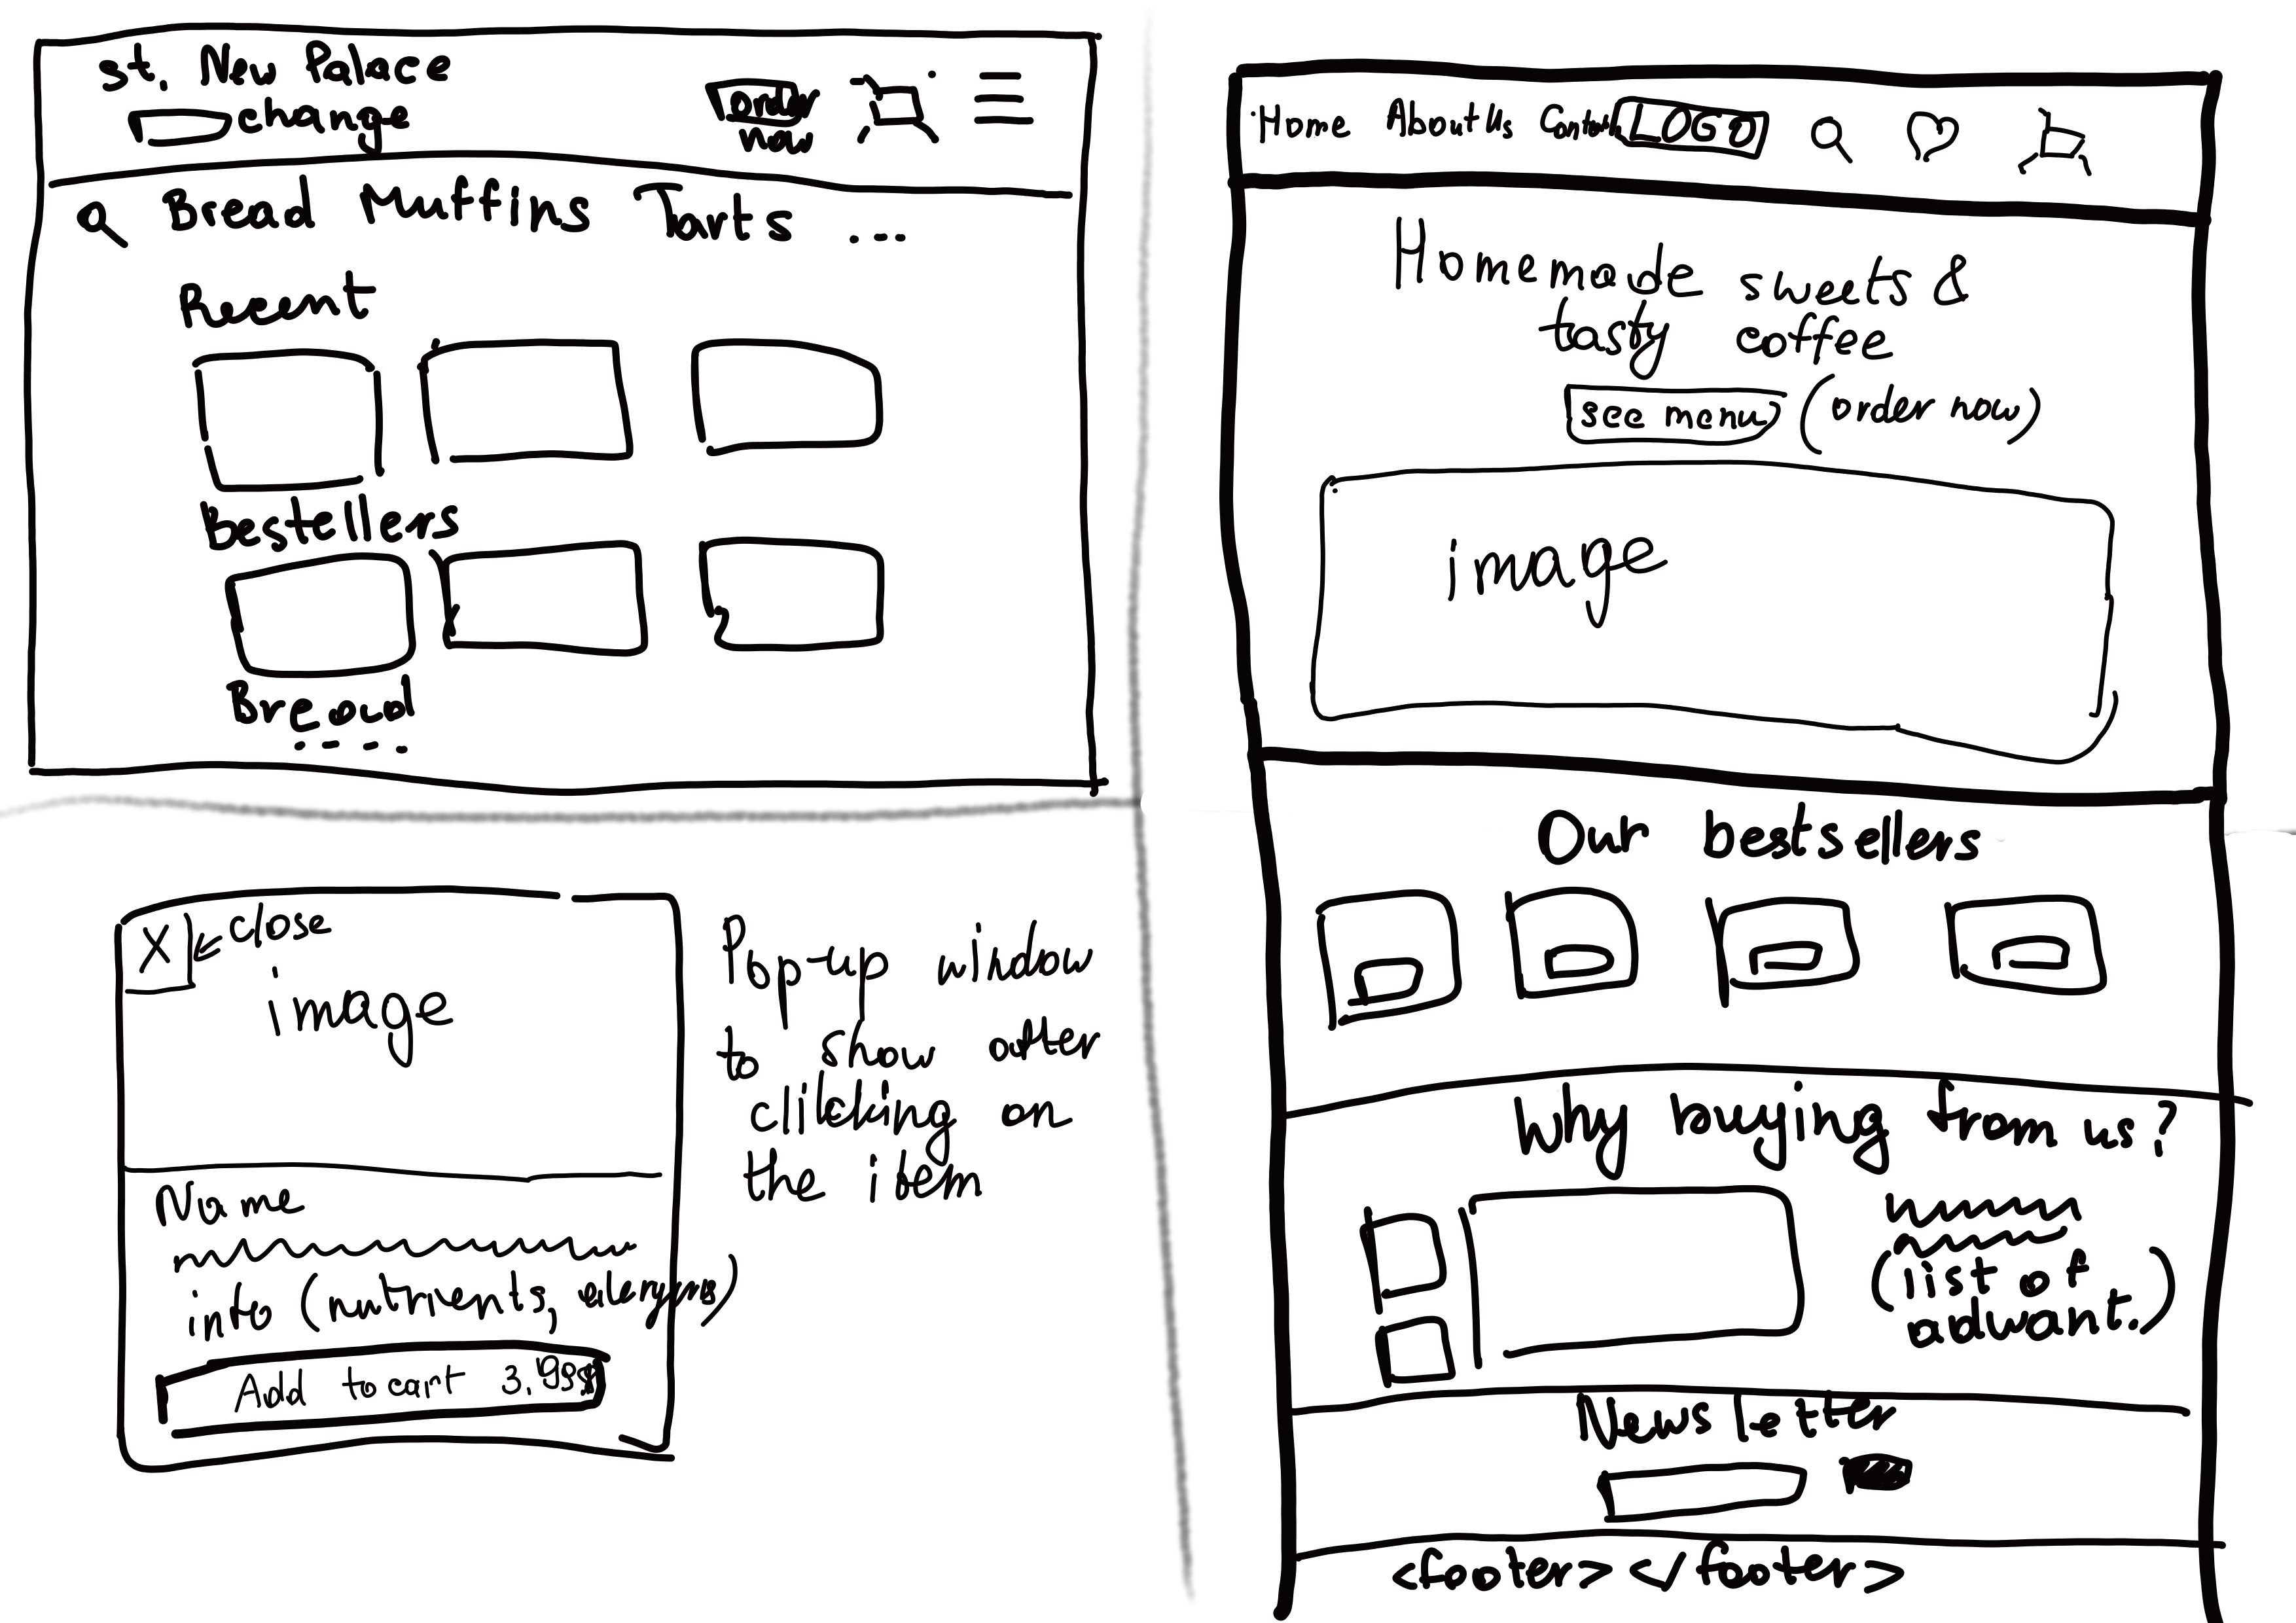 st. New Palace
change
order
now
Bread Muffins Tarts ...
Recent
Bestellers
Bread
....
X
close
image
Name
info (nutrients, alergens)
Add to cart 3.99$
Pop-up window
to show after
clilcking on
the item
Home About Us Contact LOGO
Homemade sweets &
tasty coffee
see menu (order now)
image
Our bestsellers
Why buying from us?
(list of
adwant.)
Newsletter
<footer> </footer>